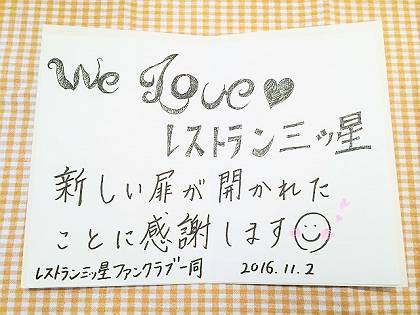 We Love♥
レストラン三ッ星
新しい扉が開かれた
ことに感謝します☺
レストラン三ッ星ファンクラブ一同 2016.11.2